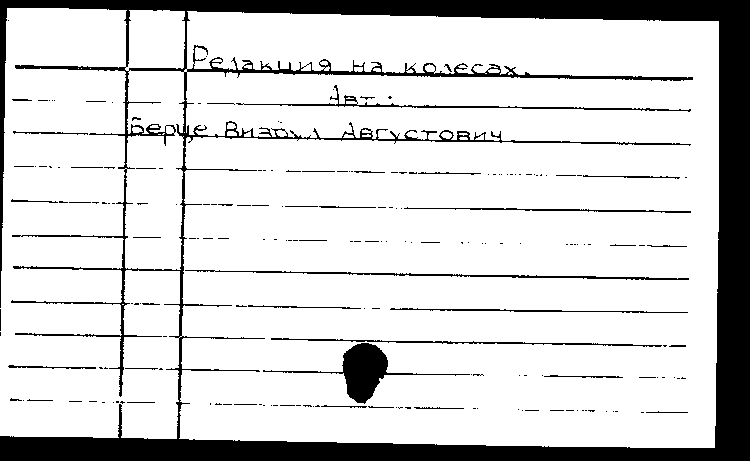 Редакция на колесах.
Авт.:
Берце, Визбул Августович